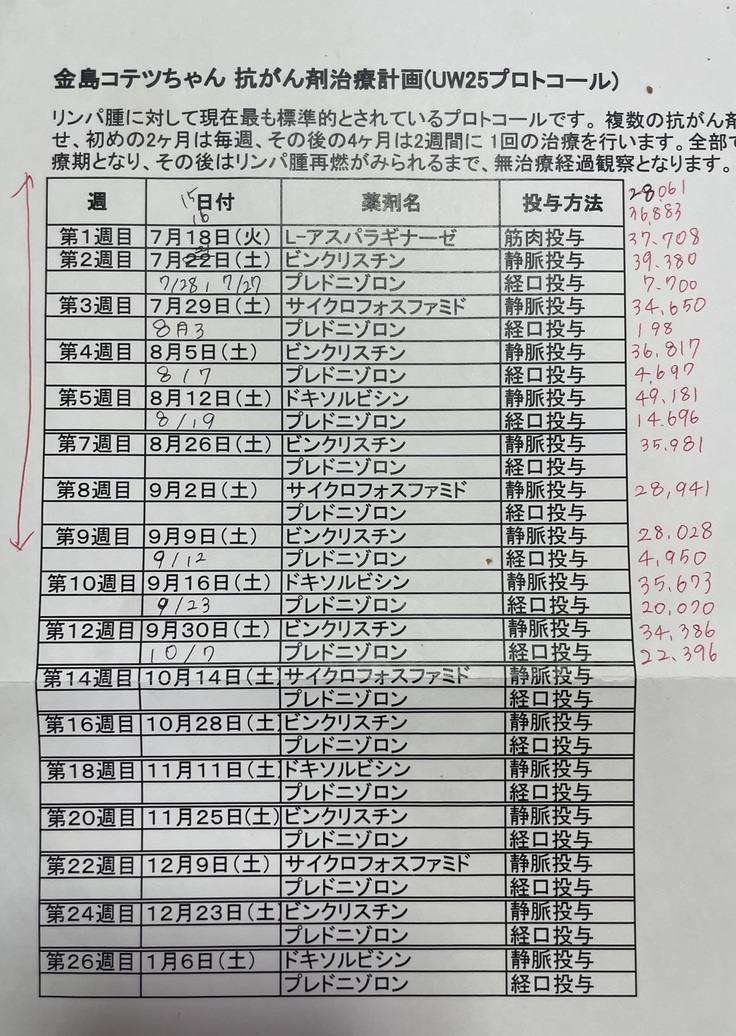 金島コテツちゃん 抗がん剤治療計画(UW25プロトコール)
リンパ腫に対して現在最も標準的とされているプロトコールです。複数の抗がん剤
せ、初めの2ヶ月は毎週、その後の4ヶ月は2週間に1回の治療を行います。全部で
療期となり、その後はリンパ腫再燃がみられるまで、無治療経過観察となります。
週 日付 薬剤名 投与方法 28061
15 16 36,883
第1週目 7月18日(火) L-アスパラギナーゼ 筋肉投与 37.708
第2週目 7月22日(土) ビンクリスチン 静脈投与 39.380
7/28, 7/27 プレドニゾロン 経口投与 7.700
第3週目 7月29日(土) サイクロフォスファミド 静脈投与 34,650
8月3 プレドニゾロン 経口投与 198
第4週目 8月5日(土) ビンクリスチン 静脈投与 36,817
8/7 プレドニゾロン 経口投与 4,697
第5週目 8月12日(土) ドキソルビシン 静脈投与 49,181
8/19 プレドニゾロン 経口投与 14.696
第7週目 8月26日(土) ビンクリスチン 静脈投与 35.981
プレドニゾロン 経口投与
第8週目 9月2日(土) サイクロフォスファミド 静脈投与 28,941
プレドニゾロン 経口投与
第9週目 9月9日(土) ビンクリスチン 静脈投与 28.028
9/12 プレドニゾロン 経口投与 4,950
第10週目 9月16日(土) ドキソルビシン 静脈投与 35.673
9/23 プレドニゾロン 経口投与 20,070
第12週目 9月30日(土) ビンクリスチン 静脈投与 34,386
10/7 プレドニゾロン 経口投与 22.396
第14週目 10月14日(土 サイクロフォスファミド 静脈投与
プレドニゾロン 経口投与
第16週目 10月28日(土) ビンクリスチン 静脈投与
プレドニゾロン 経口投与
第18週目 11月11日(土 ドキソルビシン 静脈投与
プレドニゾロン 経口投与
第20週目 11月25日(土) ビンクリスチン 静脈投与
プレドニゾロン 経口投与
第22週目 12月9日(土) サイクロフォスファミド 静脈投与
プレドニゾロン 経口投与
第24週目 12月23日(土) ビンクリスチン 静脈投与
プレドニゾロン 経口投与
第26週目 1月6日(土) ドキソルビシン 静脈投与
プレドニゾロン 経口投与